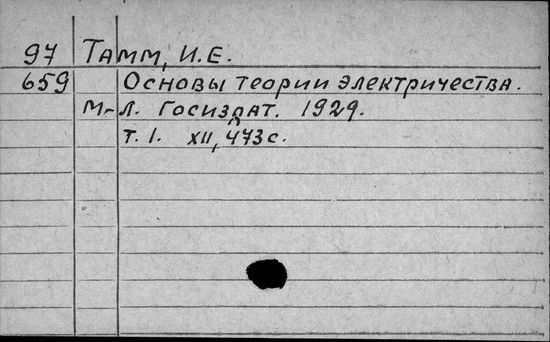 97 Тамм, И.Е.
659 Основы теории электричества.
М-Л. Госиздат. 1929.
т. 1. XII, 473 с.